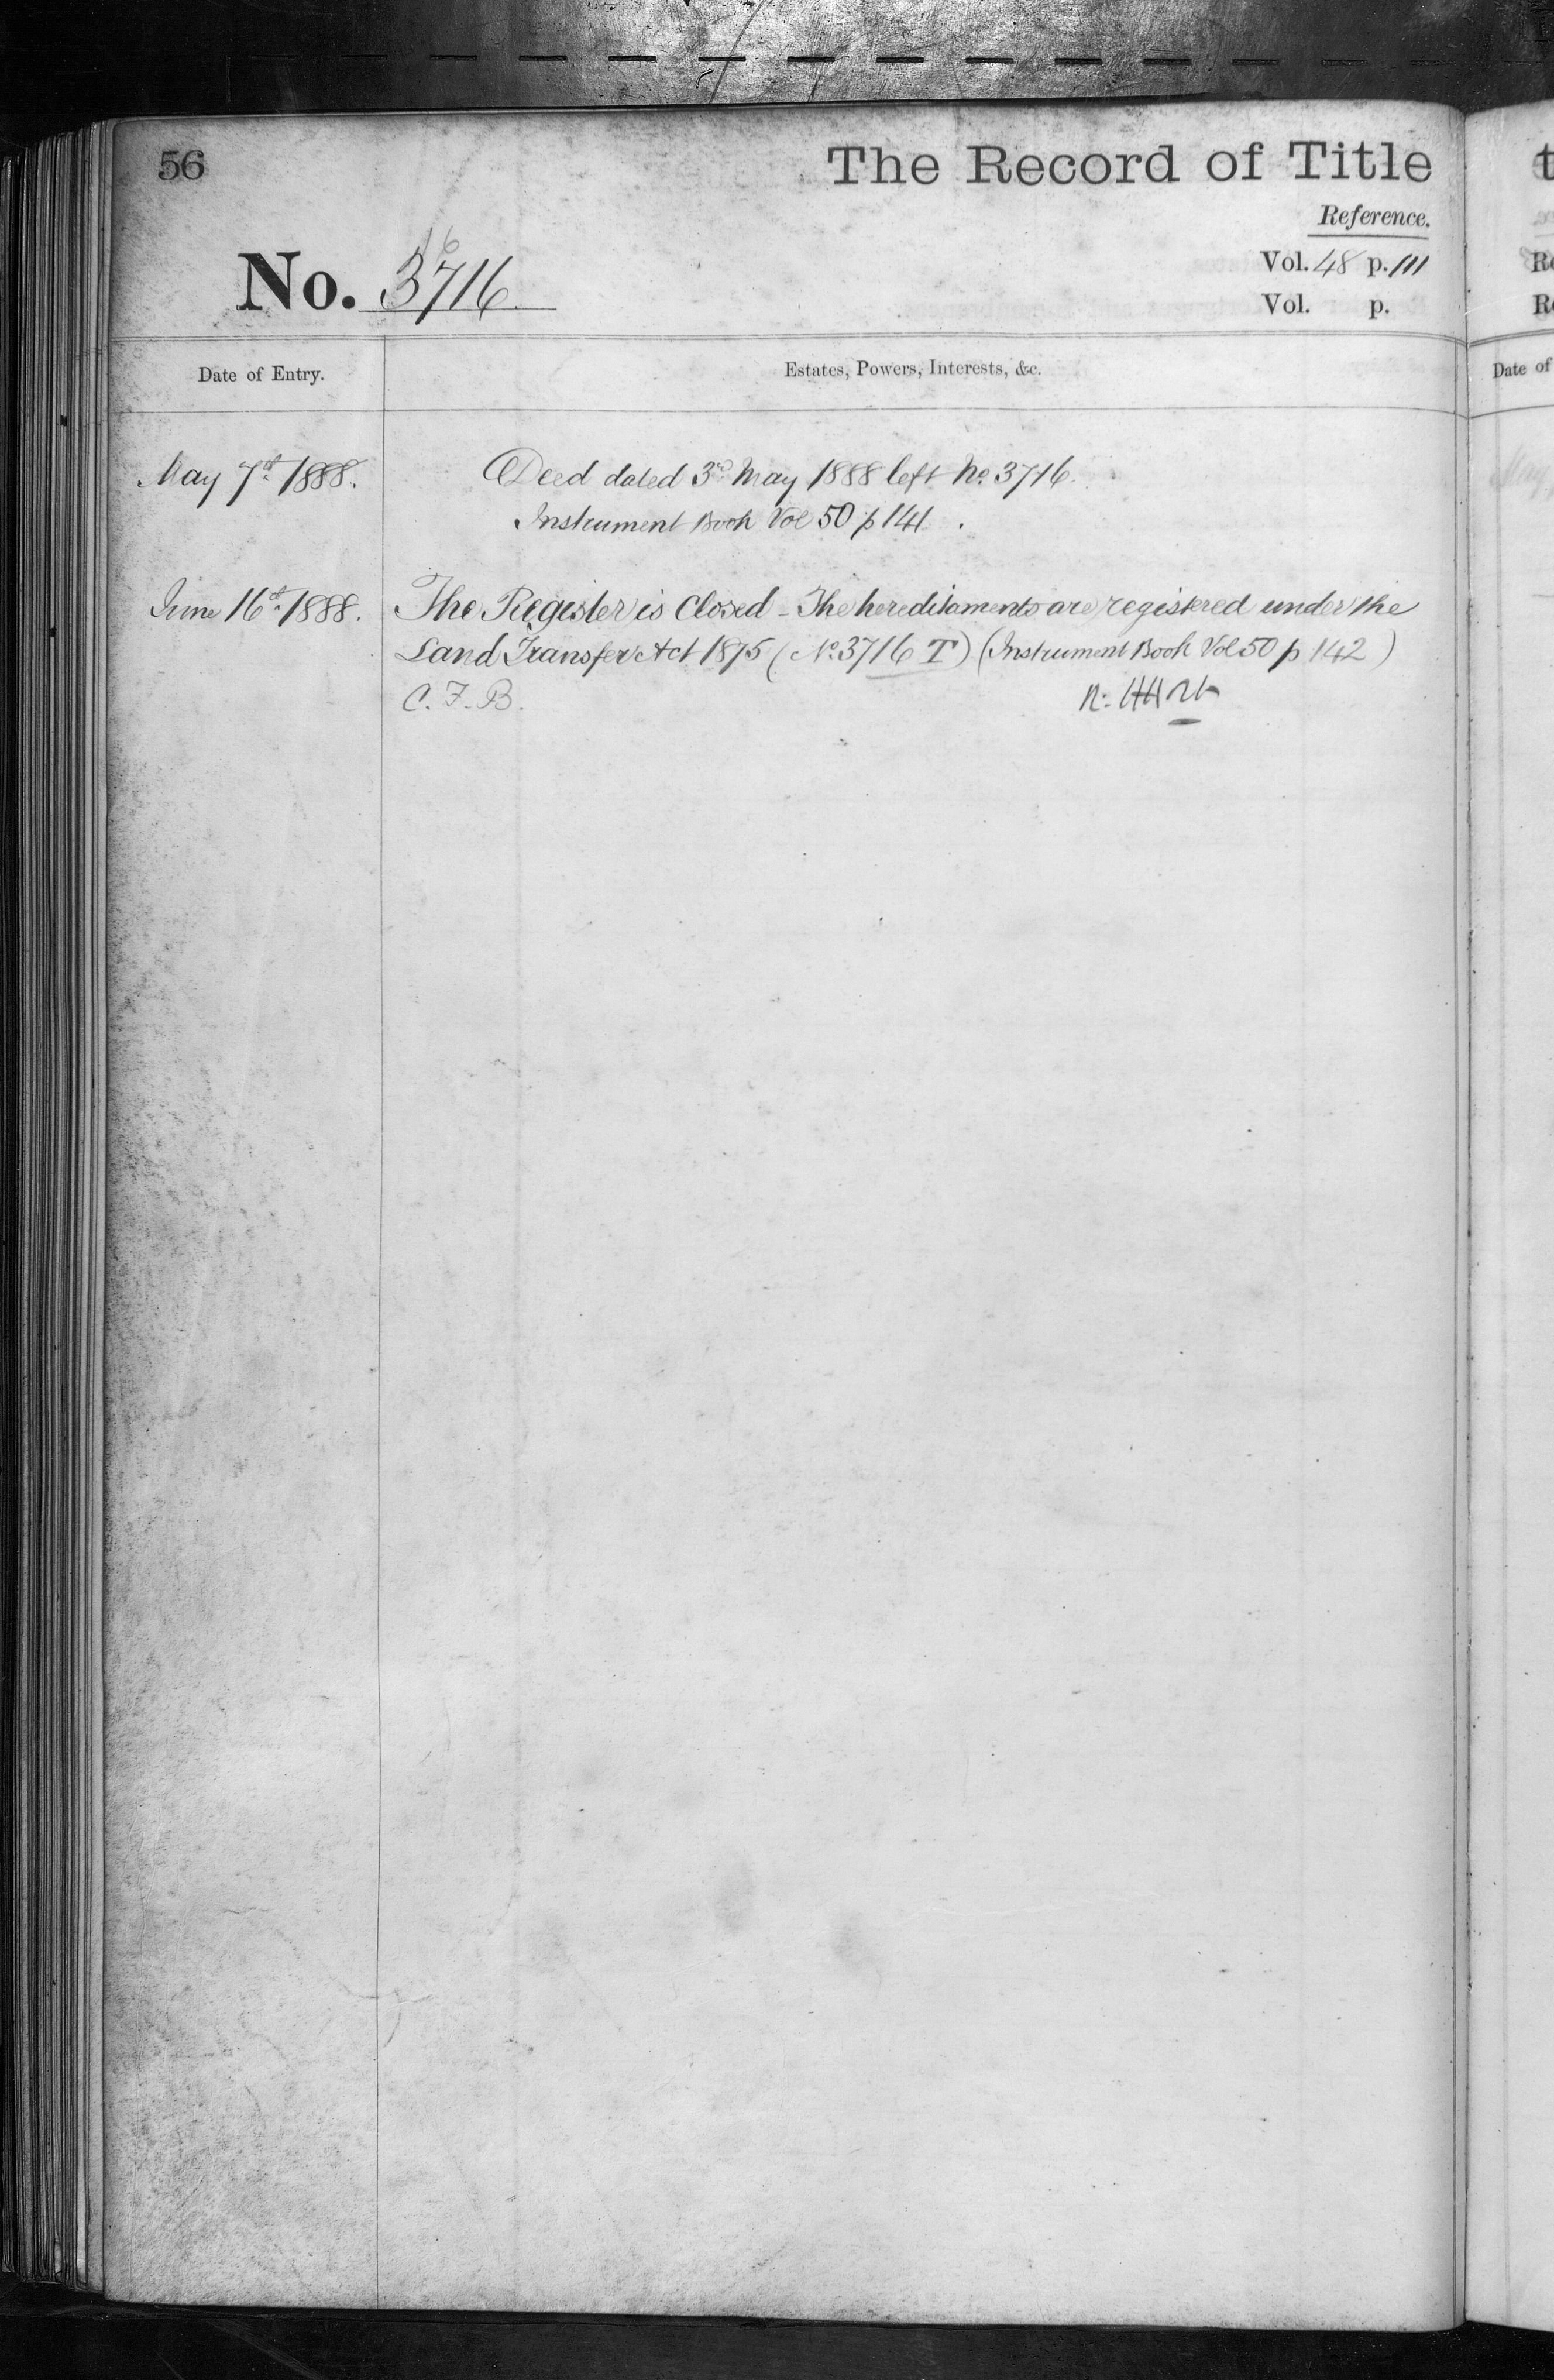 56
The Record of Title
Reference.
Vol. 48 p. 111
No. 3716.
Vol. p.
Date of Entry.
Estates, Powers, Interests, &c.
May 7th 1888.
Deed dated 3rd May 1888 left No. 3716.
Instrument Book Vol 50 p 141.
June 16th 1888.
The Register is Closed - The hereditaments are registered under the
Land Transfer Act 1875 (No. 3716 T) (Instrument Book Vol 50 p 142)
C. F. B.
Date of